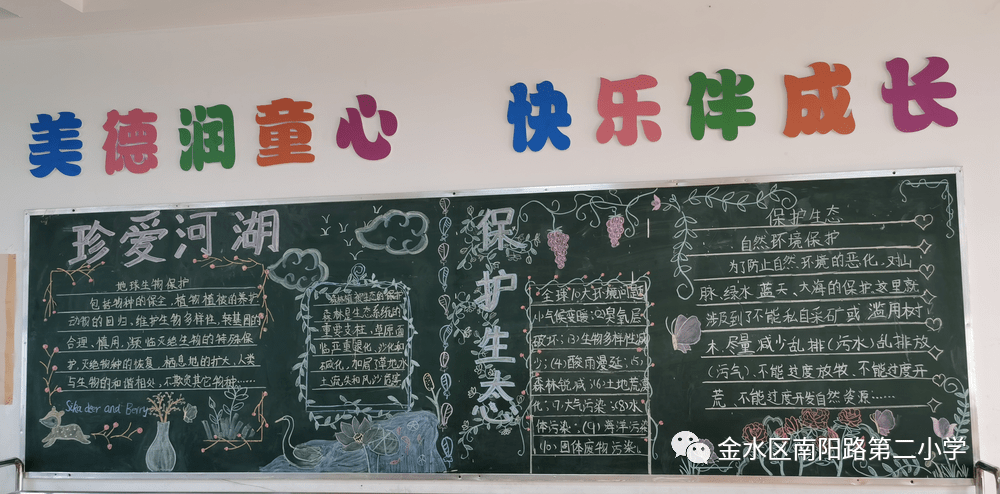 美德润童心 快乐伴成长
珍爱河湖
地球生物保护
包括物种的保全,植物植被的养护
动物的回归、维护生物多样性,转基因的
合理、慎用,濒临灭绝生物的特殊保
护,灭绝物种的恢复,栖息地的扩大,人类
与生物的和谐相处,不欺负其它物种……
森林是生态系统的
重要支柱,草原面
临严重退化、沙化和
碱化,加剧了
水土流失和风沙
保护生态
全球10大环境问题
(1)气候变暖;(2)臭氧层
破坏;(3)生物多样性减
少;(4)酸雨蔓延;(5)
森林锐减;(6)土地荒漠
化;(7)大气污染;(8)水
体污染;(9)海洋污染
(10)固体废物污染。
保护生态
自然环境保护
为了防止自然环境的恶化,对山
脉、绿水、蓝天、大海的保护,这里就
涉及到了不能私自采矿或滥用树
木,尽量减少乱排(污水)乱排放
(污气)、不能过度放牧、不能过度开
荒、不能过度开发自然资源……
金水区南阳路第二小学